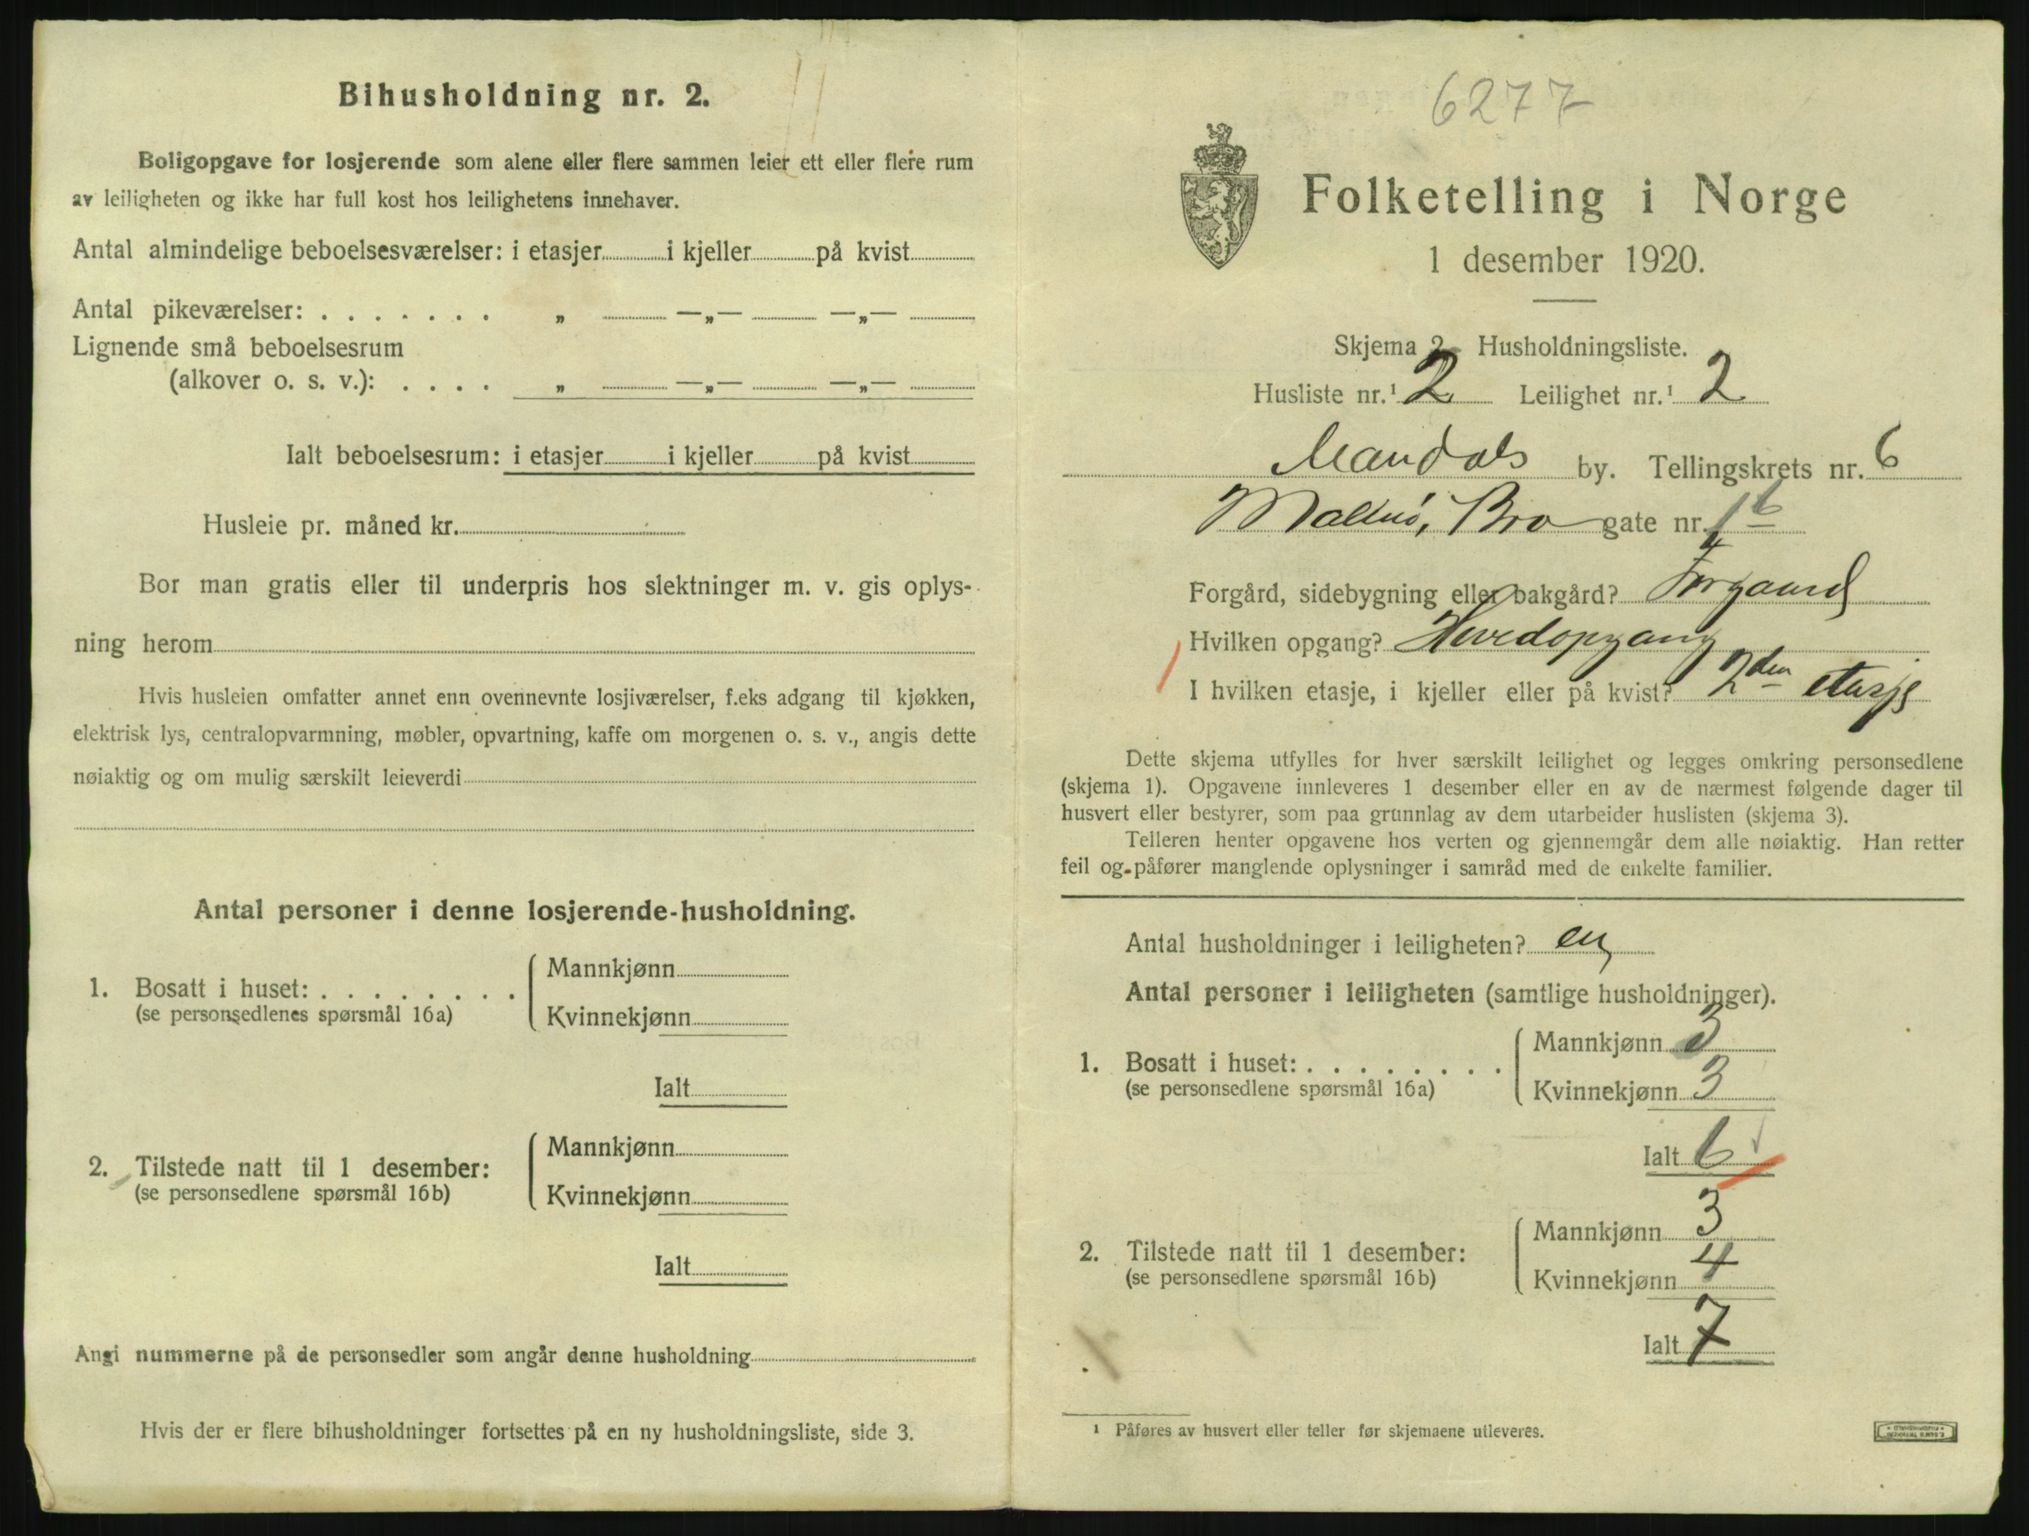 Bihusholdning nr. 2.
Boligopgave for losjerende som alene eller flere sammen leier ett eller flere rum
av leiligheten og ikke har full kost hos leilighetens innehaver.
Antal almindelige beboelsesværelser: i etasjer i kjeller på kvist
Antal pikeværelser: . . . . . . . „ —„— —„—
Lignende små beboelsesrum
(alkover o. s. v.): . . . . „ —„— —„—
Ialt beboelsesrum: i etasjer i kjeller på kvist
Husleie pr. måned kr.
Bor man gratis eller til underpris hos slektninger m. v. gis oplys-
ning herom
Hvis husleien omfatter annet enn ovennevnte losjiværelser, f.eks adgang til kjøkken,
elektrisk lys, centralopvarmning, møbler, opvartning, kaffe om morgenen o. s. v., angis dette
nøiaktig og om mulig særskilt leieverdi
Antal personer i denne losjerende-husholdning.
1. Bosatt i huset: . . . . . . . . Mannkjønn
(se personsedlenes spørsmål 16a) Kvinnekjønn
Ialt
2. Tilstede natt til 1 desember: Mannkjønn
(se personsedlene spørsmål 16b) Kvinnekjønn
Ialt
Angi nummerne på de personsedler som angår denne husholdning
Hvis der er flere bihusholdninger fortsettes på en ny husholdningsliste, side 3.
6277
Folketelling i Norge
1 desember 1920.
Skjema 2. Husholdningsliste.
Husliste nr.¹ 2 Leilighet nr.¹ 2
Mandals by. Tellingskrets nr. 6
Malmø, Bro gate nr. 16
Forgård, sidebygning eller bakgård? Forgaard
Hvilken opgang? Hovedopgang
I hvilken etasje, i kjeller eller på kvist? 2den etasje
Dette skjema utfylles for hver særskilt leilighet og legges omkring personsedlene
(skjema 1). Opgavene innleveres 1 desember eller en av de nærmest følgende dager til
husvert eller bestyrer, som paa grunnlag av dem utarbeider huslisten (skjema 3).
Telleren henter opgavene hos verten og gjennemgår dem alle nøiaktig. Han retter
feil og påfører manglende oplysninger i samråd med de enkelte familier.
Antal husholdninger i leiligheten? en
Antal personer i leiligheten (samtlige husholdninger).
1. Bosatt i huset: . . . . . . . . Mannkjønn 3
(se personsedlene spørsmål 16a) Kvinnekjønn 3
Ialt 6
2. Tilstede natt til 1 desember: Mannkjønn 3
(se personsedlene spørsmål 16b) Kvinnekjønn 4
Ialt 7
¹ Påføres av husvert eller teller før skjemaene utleveres.